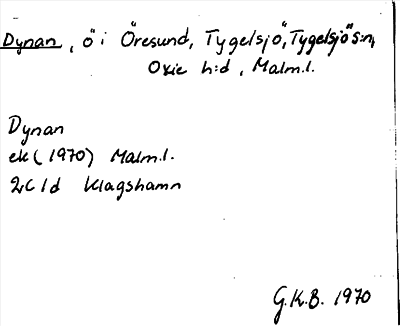 Dynan, ö i Öresund, Tygelsjö, Tygelsjö s:n,
Oxie h:d, Malm.l.
Dynan
ek (1970) Malm.l.
2C 1d Klagshamn
G.K.B. 1970